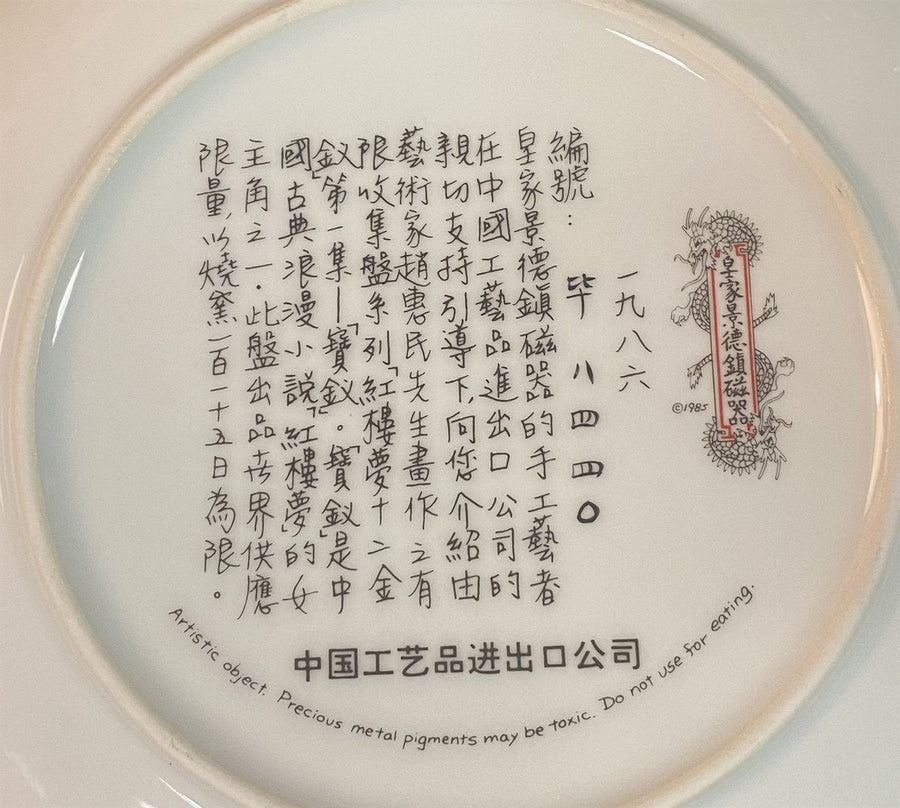 皇家景德鎮磁器
©1985
一九八六
編號：毕八四四0
皇家景德鎮磁器的手工藝者
在中國工藝品進出口公司的
親切支持引導下,向您介紹由
藝術家趙惠民先生畫作之有
限收集盤系列「紅樓夢十二金
釵」第一集—「寶釵」。「寶釵」是中
國古典浪漫小說「紅樓夢」的女
主角之一.此盤出品世界供應
限量,以燒窯一百一十五日為限。
中国工艺品进出口公司
Artistic object. Precious metal pigments may be toxic. Do not use for eating.